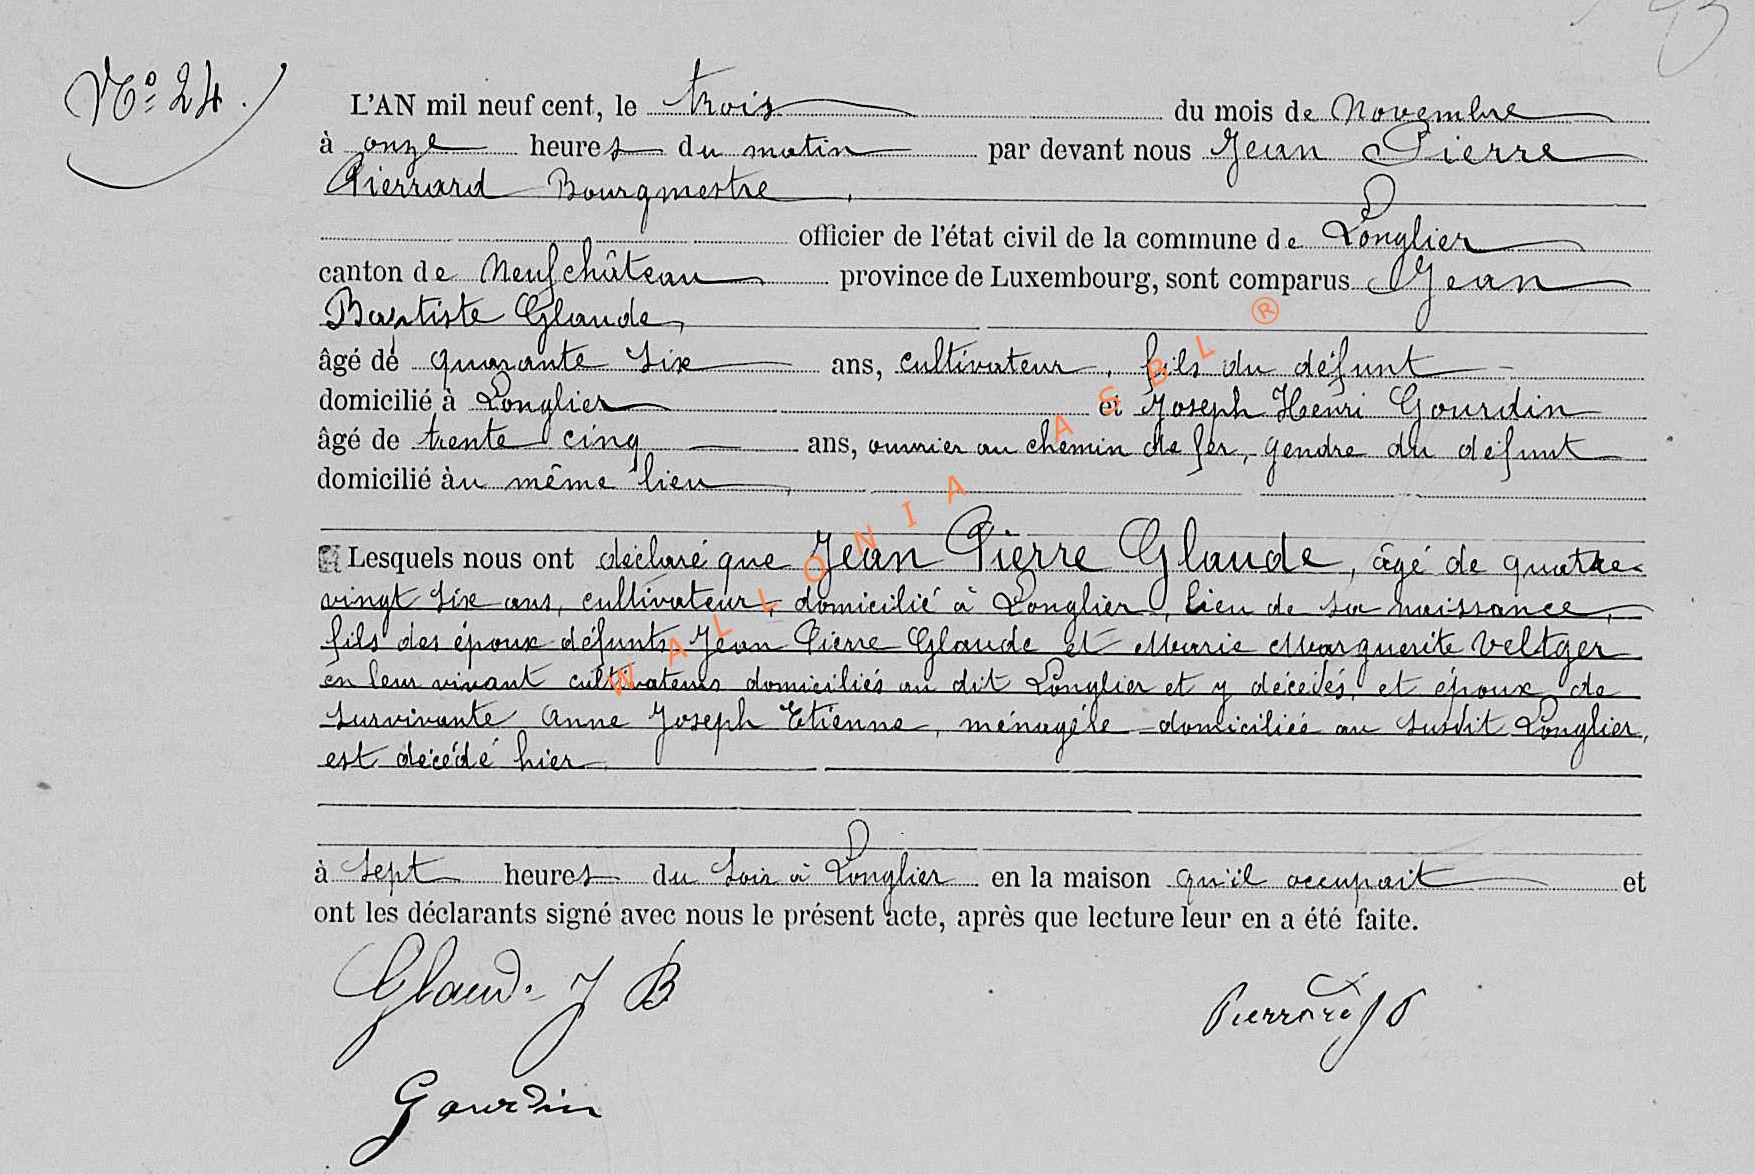 No 24.
L'AN mil neuf cent, le trois du mois de Novembre
à onze heures du matin par devant nous Jean Pierre
Pierrard Bourgmestre,
officier de l'état civil de la commune de Longlier
canton de Neufchâteau province de Luxembourg, sont comparus Jean
Baptiste Glaude,
âgé de quarante six ans, cultivateur, fils du défunt
domicilié à Longlier et Joseph Henri Gourdin
âgé de trente cinq ans, ouvrier au chemin de fer, gendre du défunt
domicilié au même lieu,
Lesquels nous ont déclaré que Jean Pierre Glaude, âgé de quatre-
vingt six ans, cultivateur, domicilié à Longlier, lieu de sa naissance,
fils des époux défunts Jean Pierre Glaude et Marie Marguerite Veltger
en leur vivant cultivateurs domiciliés au dit Longlier et y décédés, et époux de
survivante Anne Joseph Etienne, ménagère domiciliée au susdit Longlier,
est décédé hier
à sept heures du soir à Longlier en la maison qu'il occupait et
ont les déclarants signé avec nous le présent acte, après que lecture leur en a été faite.
Glaude J B
Pierrard J P
Gourdin
WALLONIA ASBL ®